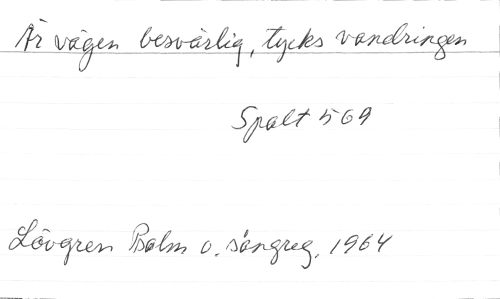 Är vägen besvärlig, tycks vandringen
Spalt 569
Lövgren Psalm o. sångreg. 1964